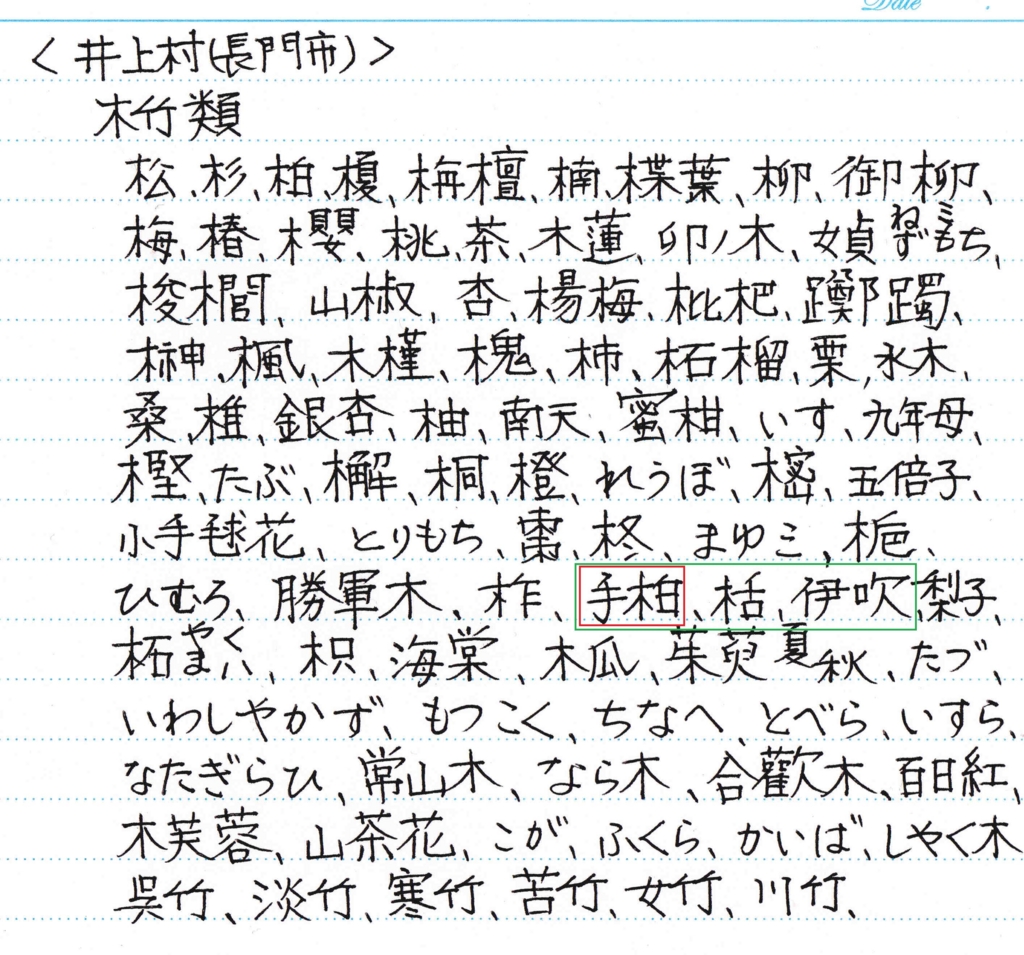 Date
〈井上村(長門市)〉
木竹類
松、杉、柏、榎、栴檀、楠、楪葉、柳、御柳、
梅、椿、櫻、桃、茶、木蓮、卯ノ木、女貞 ねず ミもち、
梭櫚、山椒、杏、楊梅、枇杷、躑躅、
榊、楓、木槿、槐、柿、柘榴、栗、水木、
桑、椎、銀杏、柚、南天、蜜柑、いす、九年母、
樫、たぶ、檞、桐、橙、れうぼ、樒、五倍子、
小手毬花、とりもち、棗、柊、まゆこ、梔、
ひむろ、勝軍木、柞、手柑、栝、伊吹、梨子、
柘、枳、海棠、木瓜、茱萸 夏 秋、たづ、
いわしやかず、もつこく、ちなへ、とべら、いすら、
なたぎらひ、常山木、なら木、合歡木、百日紅、
木芙蓉、山茶花、こが、ふくら、かいば、しやく木
呉竹、淡竹、寒竹、苦竹、女竹、川竹、